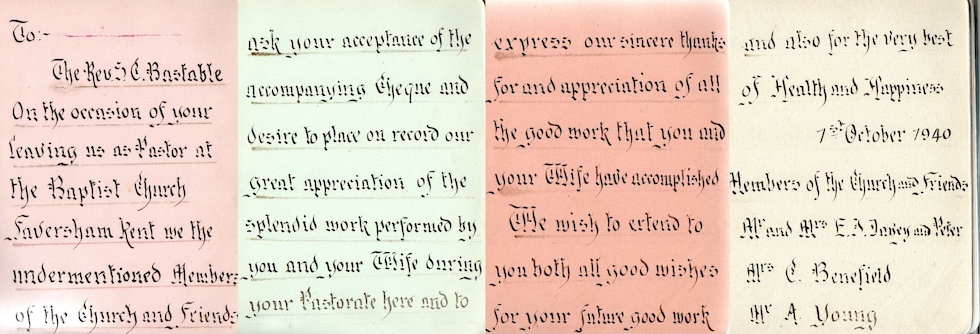 To:-
The Rev. S C. Bastable
On the occasion of your
leaving us as Pastor at
the Baptist Church
Faversham Kent we the
undermentioned Members
of the Church and Friends
ask your acceptance of the
accompanying Cheque and
desire to place on record our
great appreciation of the
splendid work performed by
you and your Wife during
your Pastorate here and to
express our sincere thanks
for and appreciation of all
the good work that you and
your Wife have accomplished
We wish to extend to
you both all good wishes
for your future good work
and also for the very best
of Health and Happiness
1st October 1940
Members of the Church and Friends
Mr and Mrs E. J. Davey and Peter
Mrs C. Benefield
Mr A. Young